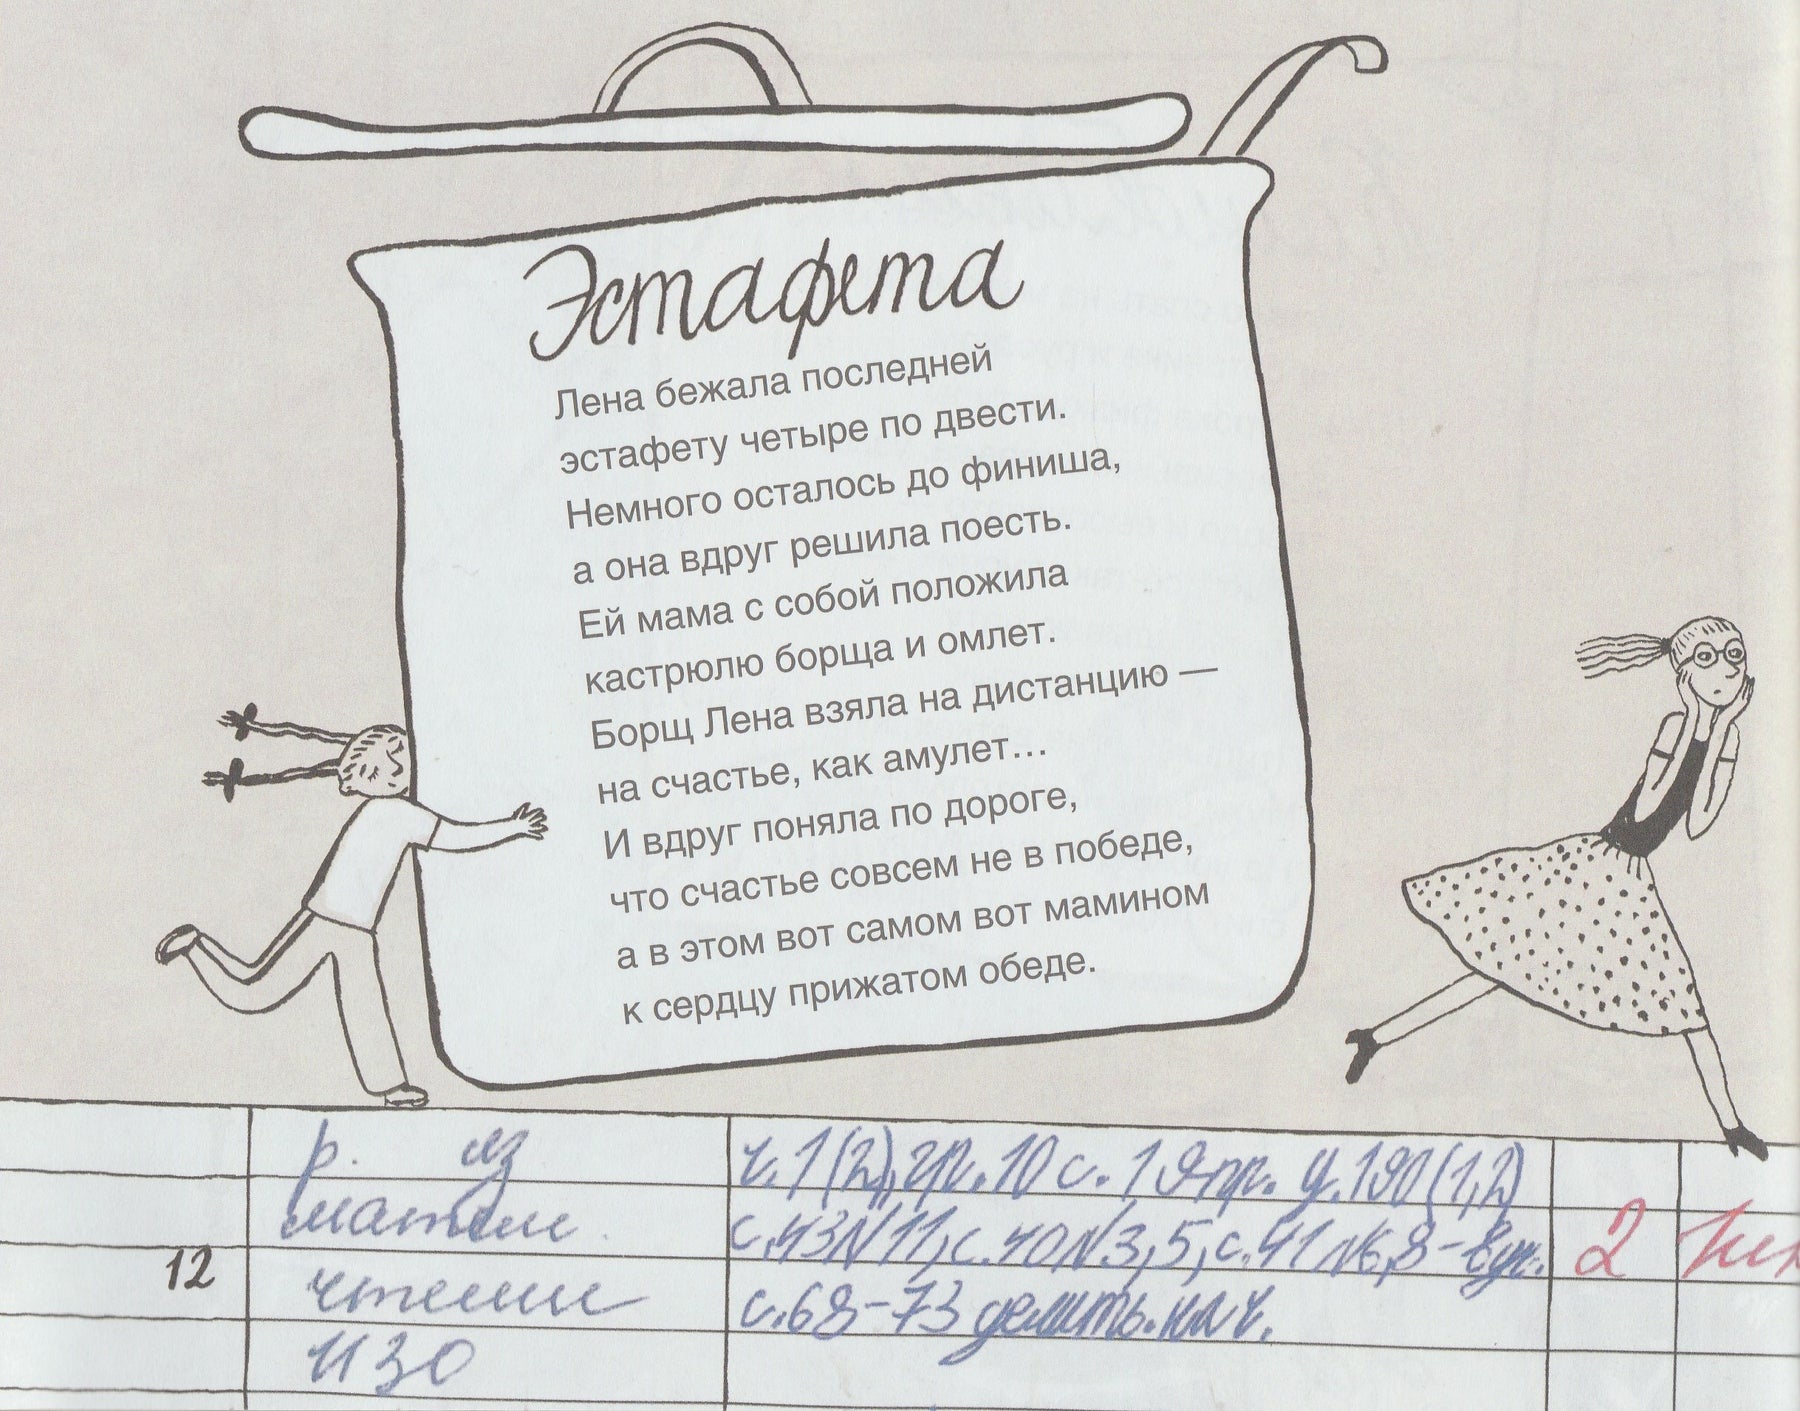 Эстафета
Лена бежала последней
эстафету четыре по двести.
Немного осталось до финиша,
а она вдруг решила поесть.
Ей мама с собой положила
кастрюлю борща и омлет.
Борщ Лена взяла на дистанцию —
на счастье, как амулет...
И вдруг поняла по дороге,
что счастье совсем не в победе,
а в этом вот самом вот мамином
к сердцу прижатом обеде.
р. яз ч.1(2), гр.10 с.19 пр. у.190(1,2)
матем. с.43N11, с.40N3,5, с.41N6,8-в уч. 2
12
чтение с.68-73 делить. на ч.
ИЗО